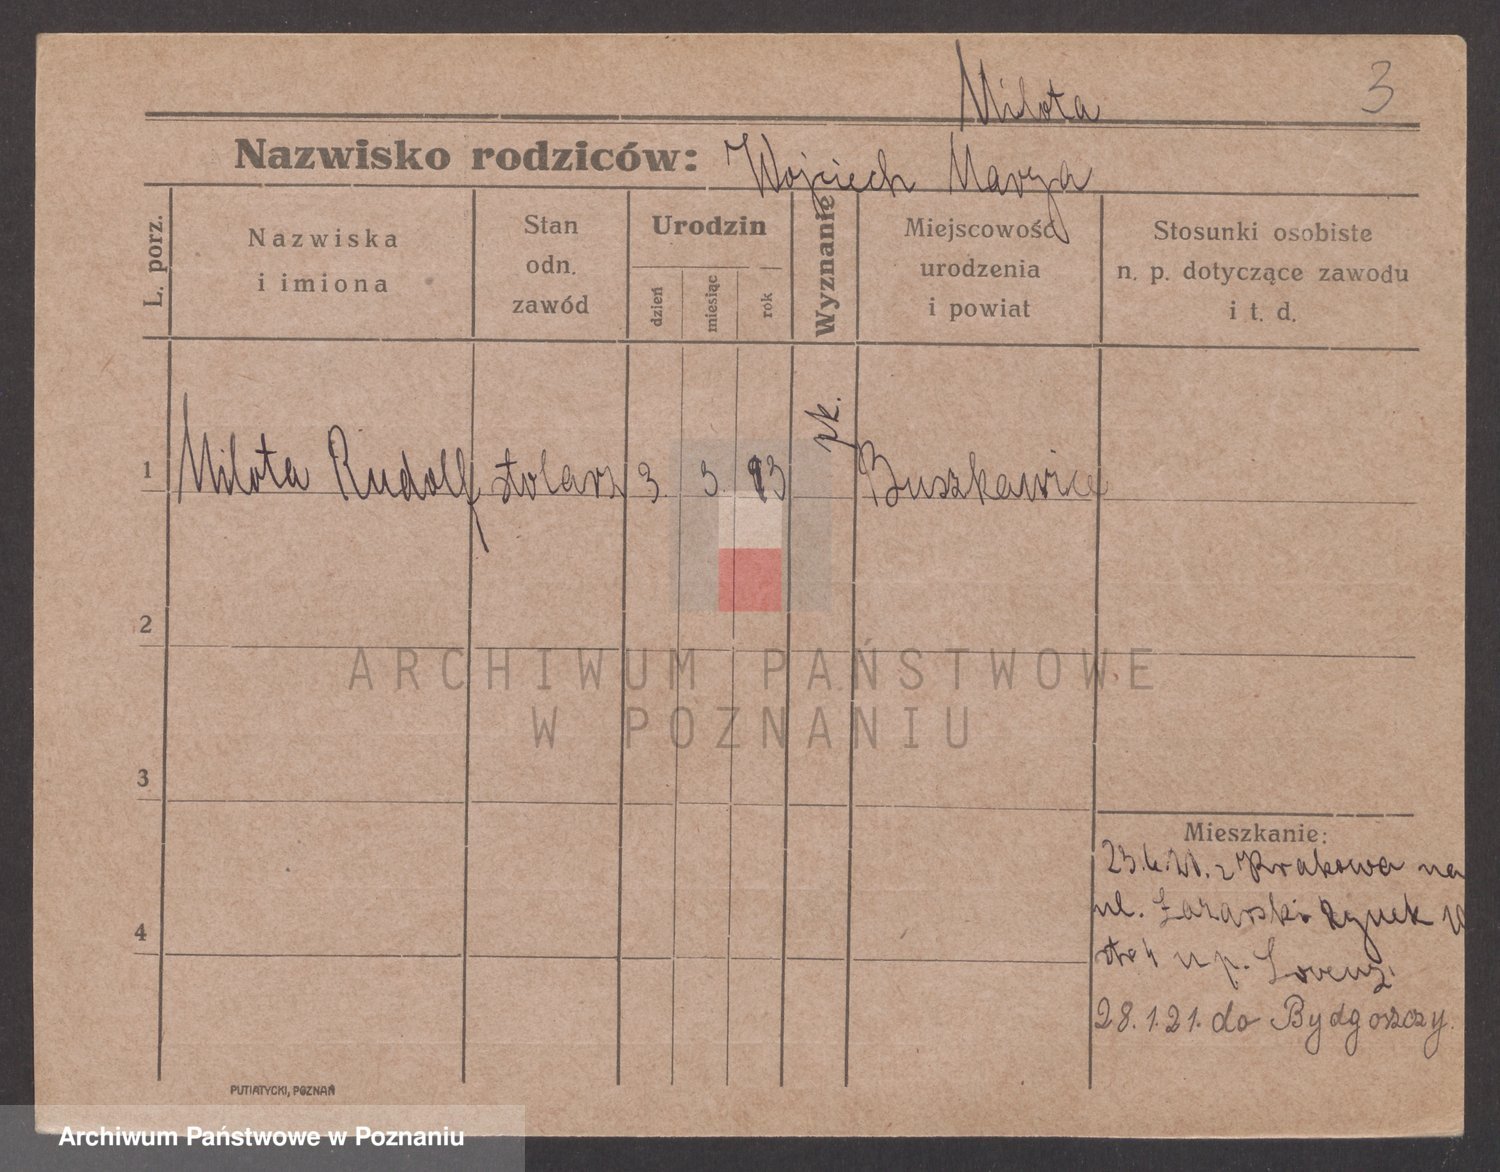 Milota
3
Nazwisko rodziców: Wojciech Marya
L. porz.
Nazwiska i imiona
Stan odn. zawód
Urodzin
dzień
miesiąc
rok
Wyznanie
Miejscowość urodzenia i powiat
Stosunki osobiste n. p. dotyczące zawodu i t. d.
1 Milota Rudolf stolarz 3. 3 93 rk. Buszkowice
2
3
4
ARCHIWUM PAŃSTWOWE
W POZNANIU
Mieszkanie:
z Krakowa na
ul. Łazarski Rynek 10
u p. Lorenz.
28.1.21. do Bydgoszczy.
PUTIATYCKI, POZNAŃ
Archiwum Państwowe w Poznaniu